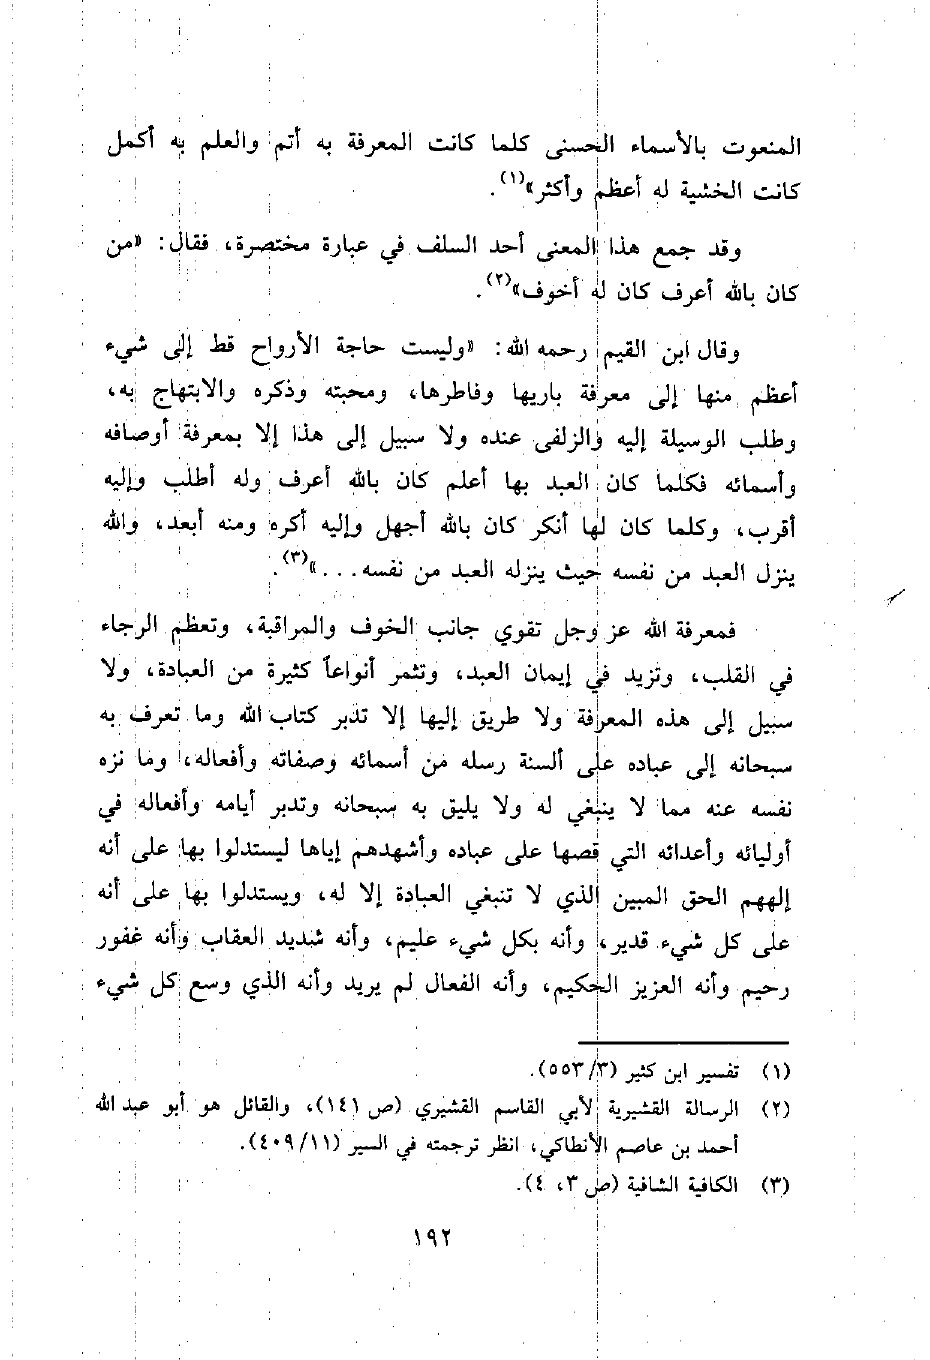 المنعوت بالأسماء الحسنى كلما كانت المعرفة به أتم والعلم به أكمل
كانت الخشية له أعظم وأكثر»(١).
وقد جمع هذا المعنى أحد السلف في عبارة مختصرة، فقال: «من
كان بالله أعرف كان له أخوف»(٢).
وقال ابن القيم رحمه الله: «وليست حاجة الأرواح قط إلى شيء
أعظم منها إلى معرفة باريها وفاطرها، ومحبته وذكره والابتهاج به،
وطلب الوسيلة إليه والزلفى عنده ولا سبيل إلى هذا إلا بمعرفة أوصافه
وأسمائه فكلما كان العبد بها أعلم كان بالله أعرف وله أطلب وإليه
أقرب، وكلما كان لها أنكر كان بالله أجهل وإليه أكره ومنه أبعد، والله
ينزل العبد من نفسه حيث ينزله العبد من نفسه...»(٣).
فمعرفة الله عز وجل تقوي جانب الخوف والمراقبة، وتعظم الرجاء
في القلب، وتزيد في إيمان العبد، وتثمر أنواعاً كثيرة من العبادة، ولا
سبيل إلى هذه المعرفة ولا طريق إليها إلا تدبر كتاب الله وما تعرف به
سبحانه إلى عباده على ألسنة رسله من أسمائه وصفاته وأفعاله، وما نزه
نفسه عنه مما لا ينبغي له ولا يليق به سبحانه وتدبر أيامه وأفعاله في
أوليائه وأعدائه التي قصها على عباده وأشهدهم إياها ليستدلوا بها على أنه
إلههم الحق المبين الذي لا تنبغي العبادة إلا له، ويستدلوا بها على أنه
على كل شيء قدير، وأنه بكل شيء عليم، وأنه شديد العقاب وأنه غفور
رحيم وأنه العزيز الحكيم، وأنه الفعال لم يريد وأنه الذي وسع كل شيء
(١) تفسير ابن كثير (٥٥٣/٣).
(٢) الرسالة القشيرية لأبي القاسم القشيري (ص ١٤١)، والقائل هو أبو عبد الله
أحمد بن عاصم الأنطاكي، انظر ترجمته في السير (٤٠٩/١١).
(٣) الكافية الشافية (ص ٣، ٤).
١٩٢